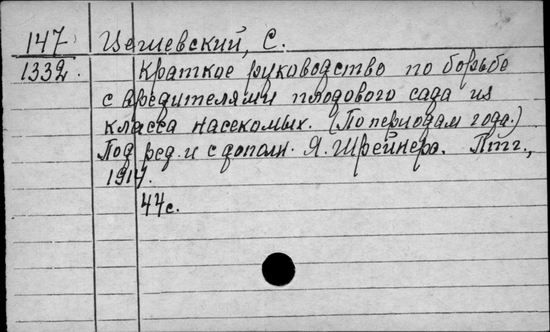 147 Цешевский, С.
1332. Краткое руководство по борьбе
с вредителями плодового сада из
класса насекомых. (По периодам года.)
Под ред. и с дополн. Я. Шрейнера. Птг.,
1917.
44с.